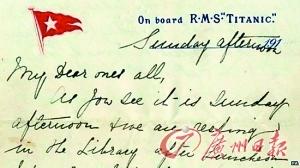 On board R·M·S "TITANIC."
Sunday afternoon 191
My Dear ones all,
As you see it is Sunday
afternoon & we are resting
in the Library after Luncheon
廣州日报